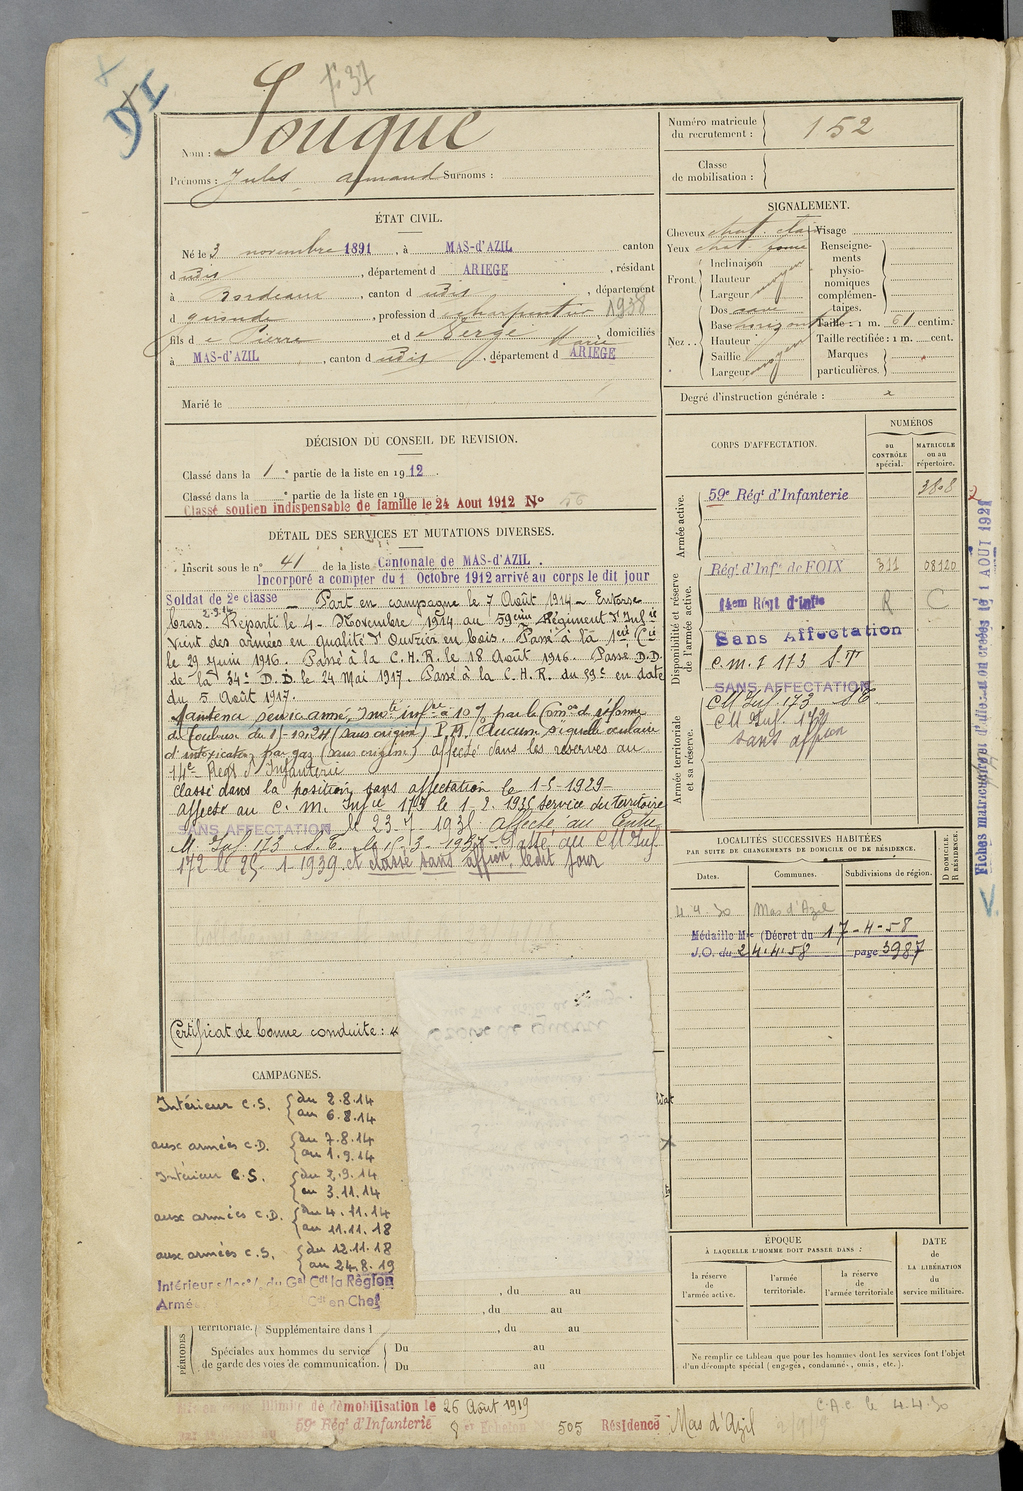 F° 37
Nom : Souque
Prénoms : Jules Armand Surnoms :
Numéro matricule du recrutement : 152
Classe de mobilisation :
ÉTAT CIVIL.
Né le 3 novembre 1891, à MAS-d'AZIL canton
d udit, département d ARIEGE, résidant
à Bordeaux, canton d udit, département
d gironde, profession d e charpentier 1938
fils d e Pierre et d e Vergé Marie, domiciliés
à MAS-d'AZIL, canton d udit, département d ARIEGE
Marié le
SIGNALEMENT.
Cheveux chat clair
Yeux
Front.
Inclinaison
Hauteur moyen
Largeur
Nez..
Dos cave
Base horizontal
Hauteur
Saillie moyen
Largeur
Visage
Renseignements physionomiques complémentaires.
Taille : 1 m. 61 centim.
Taille rectifiée : 1 m. cent.
Marques particulières.
Degré d'instruction générale : 2
DÉCISION DU CONSEIL DE REVISION.
Classé dans la 1e partie de la liste en 1912.
Classé dans la e partie de la liste en 19
Classé soutien indispensable de famille le 24 Aout 1912 N° 56
DÉTAIL DES SERVICES ET MUTATIONS DIVERSES.
Inscrit sous le n° 41 de la liste Cantonale de MAS-d'AZIL.
Incorporé a compter du 1 Octobre 1912 arrivé au corps le dit jour
Soldat de 2e classe _ Part en campagne le 7 Août 1914 _ Entorse
bras. 2.9.14 Reparti le 4 - Novembre 1914 au 59eme Régiment d'Infie
Vient des armées en qualité d'Ouvrier en bois. Passé à la 1ere Cie
le 29 Juin 1916. Passé à la C.H.R. le 18 Août 1916. Passé D.D.
de la 34e D.D. le 24 Mai 1917. Passé à la C.H.R. du 59e en date
du 5 Août 1917.
Maintenu service armé, Invte infre à 10% par la Con de réforme
de Toulouse du 10-24 (sans origine) P.M. Aucun séquelle oculaire
d'intoxication par gaz (sans origine) affecté dans les réserves au
14e Régt d'Infanterie
Classé dans la position sans affectation le 1-5-1929
affecté au C. M. Infie 173 le 1-2. 1935 service du territoire
SANS AFFECTATION le 23-7-1935 Affecté au Centre
M. Inf. 173 S.T. le 15-3-1937. Passé au CM Inf.
172 le 25-1-1939 et classé sans affion ledit jour
Certificat de bonne conduite : «
CORPS D'AFFECTATION.
NUMÉROS
au CONTRÔLE spécial.
MATRICULE ou au répertoire.
Armée active.
59e Régt d'Infanterie 3808
Disponibilité et réserve de l'armée active.
Régt d'Infie de FOIX 311 08120
14eme Régt d'Infie R C
Sans Affectation
C.M.I 173 S.T
Armée territoriale et sa réserve.
SANS AFFECTATION
CM Inf. 173 S.T.
CM Inf. 172
sans affion
Fiches matricule et d'affectation créées le 1 AOUT 1921
LOCALITÉS SUCCESSIVES HABITÉES
PAR SUITE DE CHANGEMENTS DE DOMICILE OU DE RÉSIDENCE.
Dates.
Communes.
Subdivisions de région.
D DOMICILE. R RÉSIDENCE.
4-4-30 Mas d'Azil
Médaille Mre (Décret du 17-4-58
J.O. du 24.4.58 page 3987
CAMPAGNES.
Intérieur C.S. du 2.8.14
au 6.8.14
aux armées C.D. du 7.8.14
au 1.9.14
Intérieur C.S. du 2.9.14
au 3.11.14
aux armées C.D. du 4.11.14
au 11.11.18
aux armées C.S. du 12.11.18
au 24.8.19
Intérieur Gal Cdt la Région
Armé Cdt en Chef
, du au
, du au
territoriale. Supplémentaire dans l , du au
PÉRIODES
Spéciales aux hommes du service de garde des voies de communication.
Du au
Du au
ÉPOQUE
À LAQUELLE L'HOMME DOIT PASSER DANS :
la réserve de l'armée active.
l'armée territoriale.
la réserve de l'armée territoriale
DATE de LA LIBÉRATION du service militaire.
Ne remplir ce tableau que pour les hommes dont les services font l'objet
d'un décompte spécial (engagés, condamnés, omis, etc.).
illimité de démobilisation le 26 Août 1919
59e Régt d'Infanterie 8 Echelon 505 Résidence Mas d'Azil
C.A.C le 4.4.30